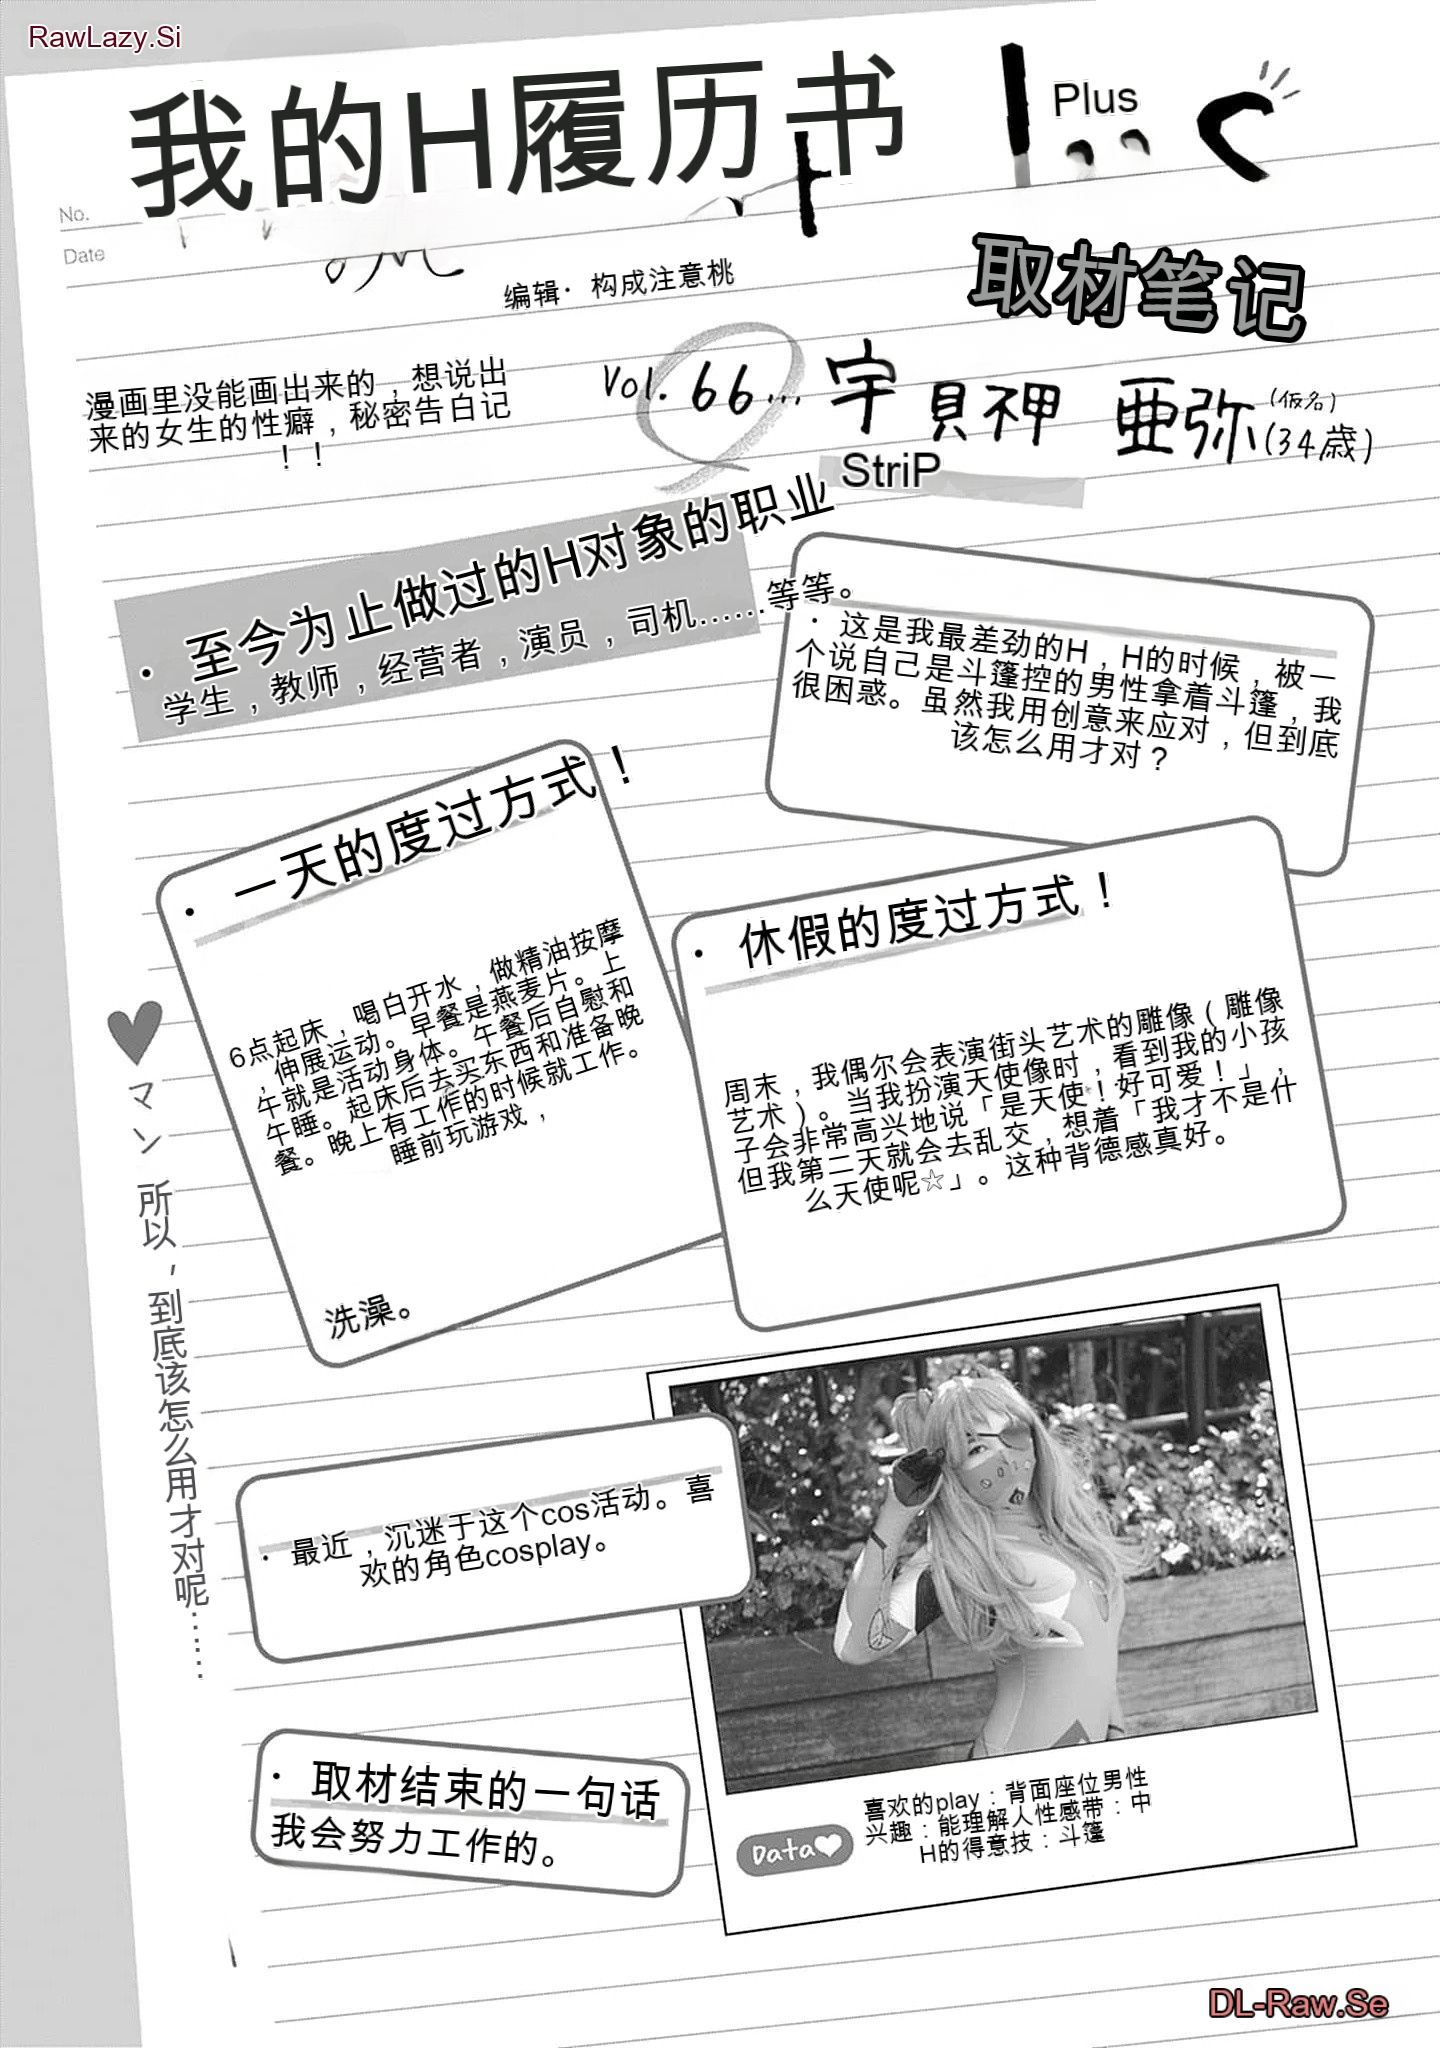 RawLazy.Si
我的H履历书
Plus
No.
Date
编辑·构成注意桃
取材笔记
漫画里没能画出来的，想说出
来的女生的性癖，秘密告白记
！！
Vol.66... 宇貝神 亜弥(仮名)
(34歳)
StriP
·至今为止做过的H对象的职业
学生，教师，经营者，演员，司机……等等。
·这是我最差劲的H，H的时候，被一
个说自己是斗篷控的男性拿着斗篷，我
很困惑。虽然我用创意来应对，但到底
该怎么用才对？
·一天的度过方式！
6点起床，喝白开水，做精油按摩
，伸展运动。早餐是燕麦片。上
午就是活动身体。午餐后自慰和
午睡。起床后去买东西和准备晚
餐。晚上有工作的时候就工作。
睡前玩游戏，
洗澡。
·休假的度过方式！
周末，我偶尔会表演街头艺术的雕像（雕像
艺术）。当我扮演天使像时，看到我的小孩
子会非常高兴地说「是天使！好可爱！」，
但我第二天就会去乱交，想着「我才不是什
么天使呢☆」。这种背德感真好。
♥マン 所以，到底该怎么用才对呢……
·最近，沉迷于这个cos活动。喜
欢的角色cosplay。
·取材结束的一句话
我会努力工作的。
Data♥
喜欢的play：背面座位男性
兴趣：能理解人性感带：中
H的得意技：斗篷
DL-Raw.Se